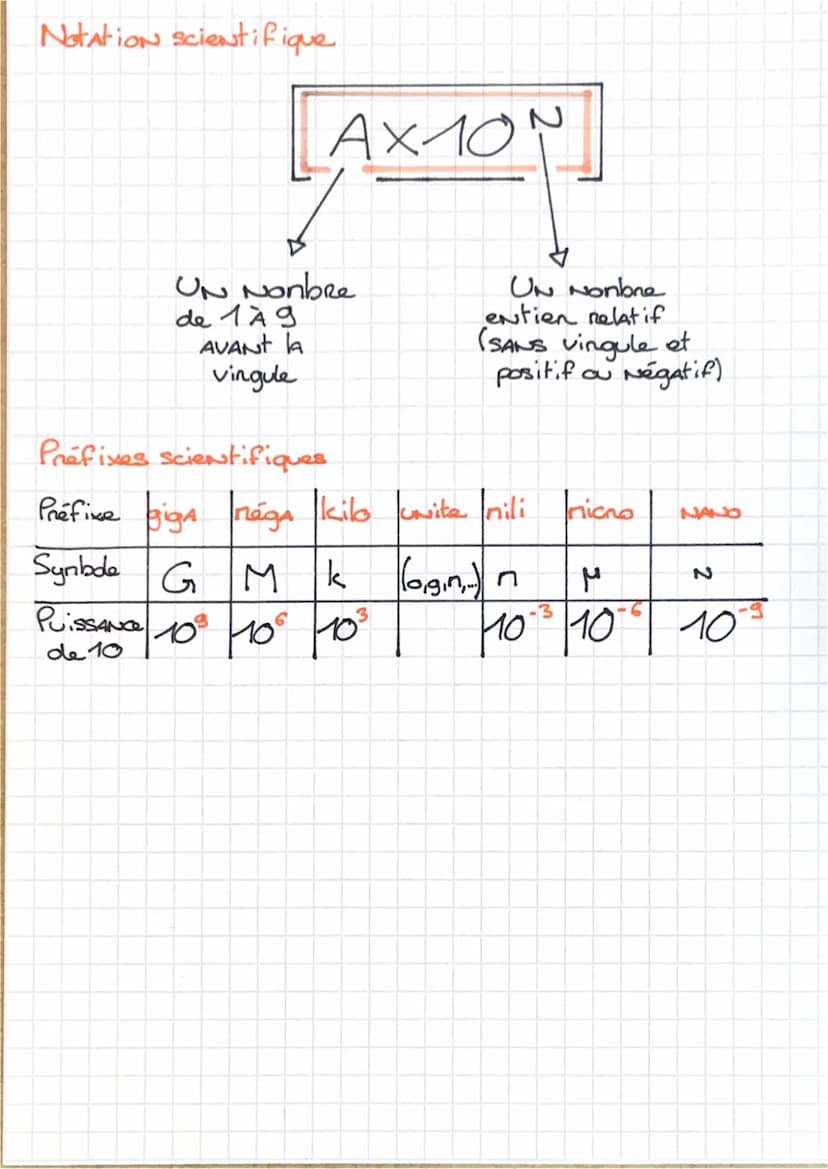 Notation scientifique
A×10^N
Un nombre
de 1 à 9
avant la
virgule
Un nombre
entier relatif
(sans virgule et
positif ou négatif)
Préfixes scientifiques
Préfixe giga méga kilo unite mili micro nano
Symbole G M k (o,g,m,...) m µ n
Puissance 10^9 10^6 10^3 10^-3 10^-6 10^-9
de 10